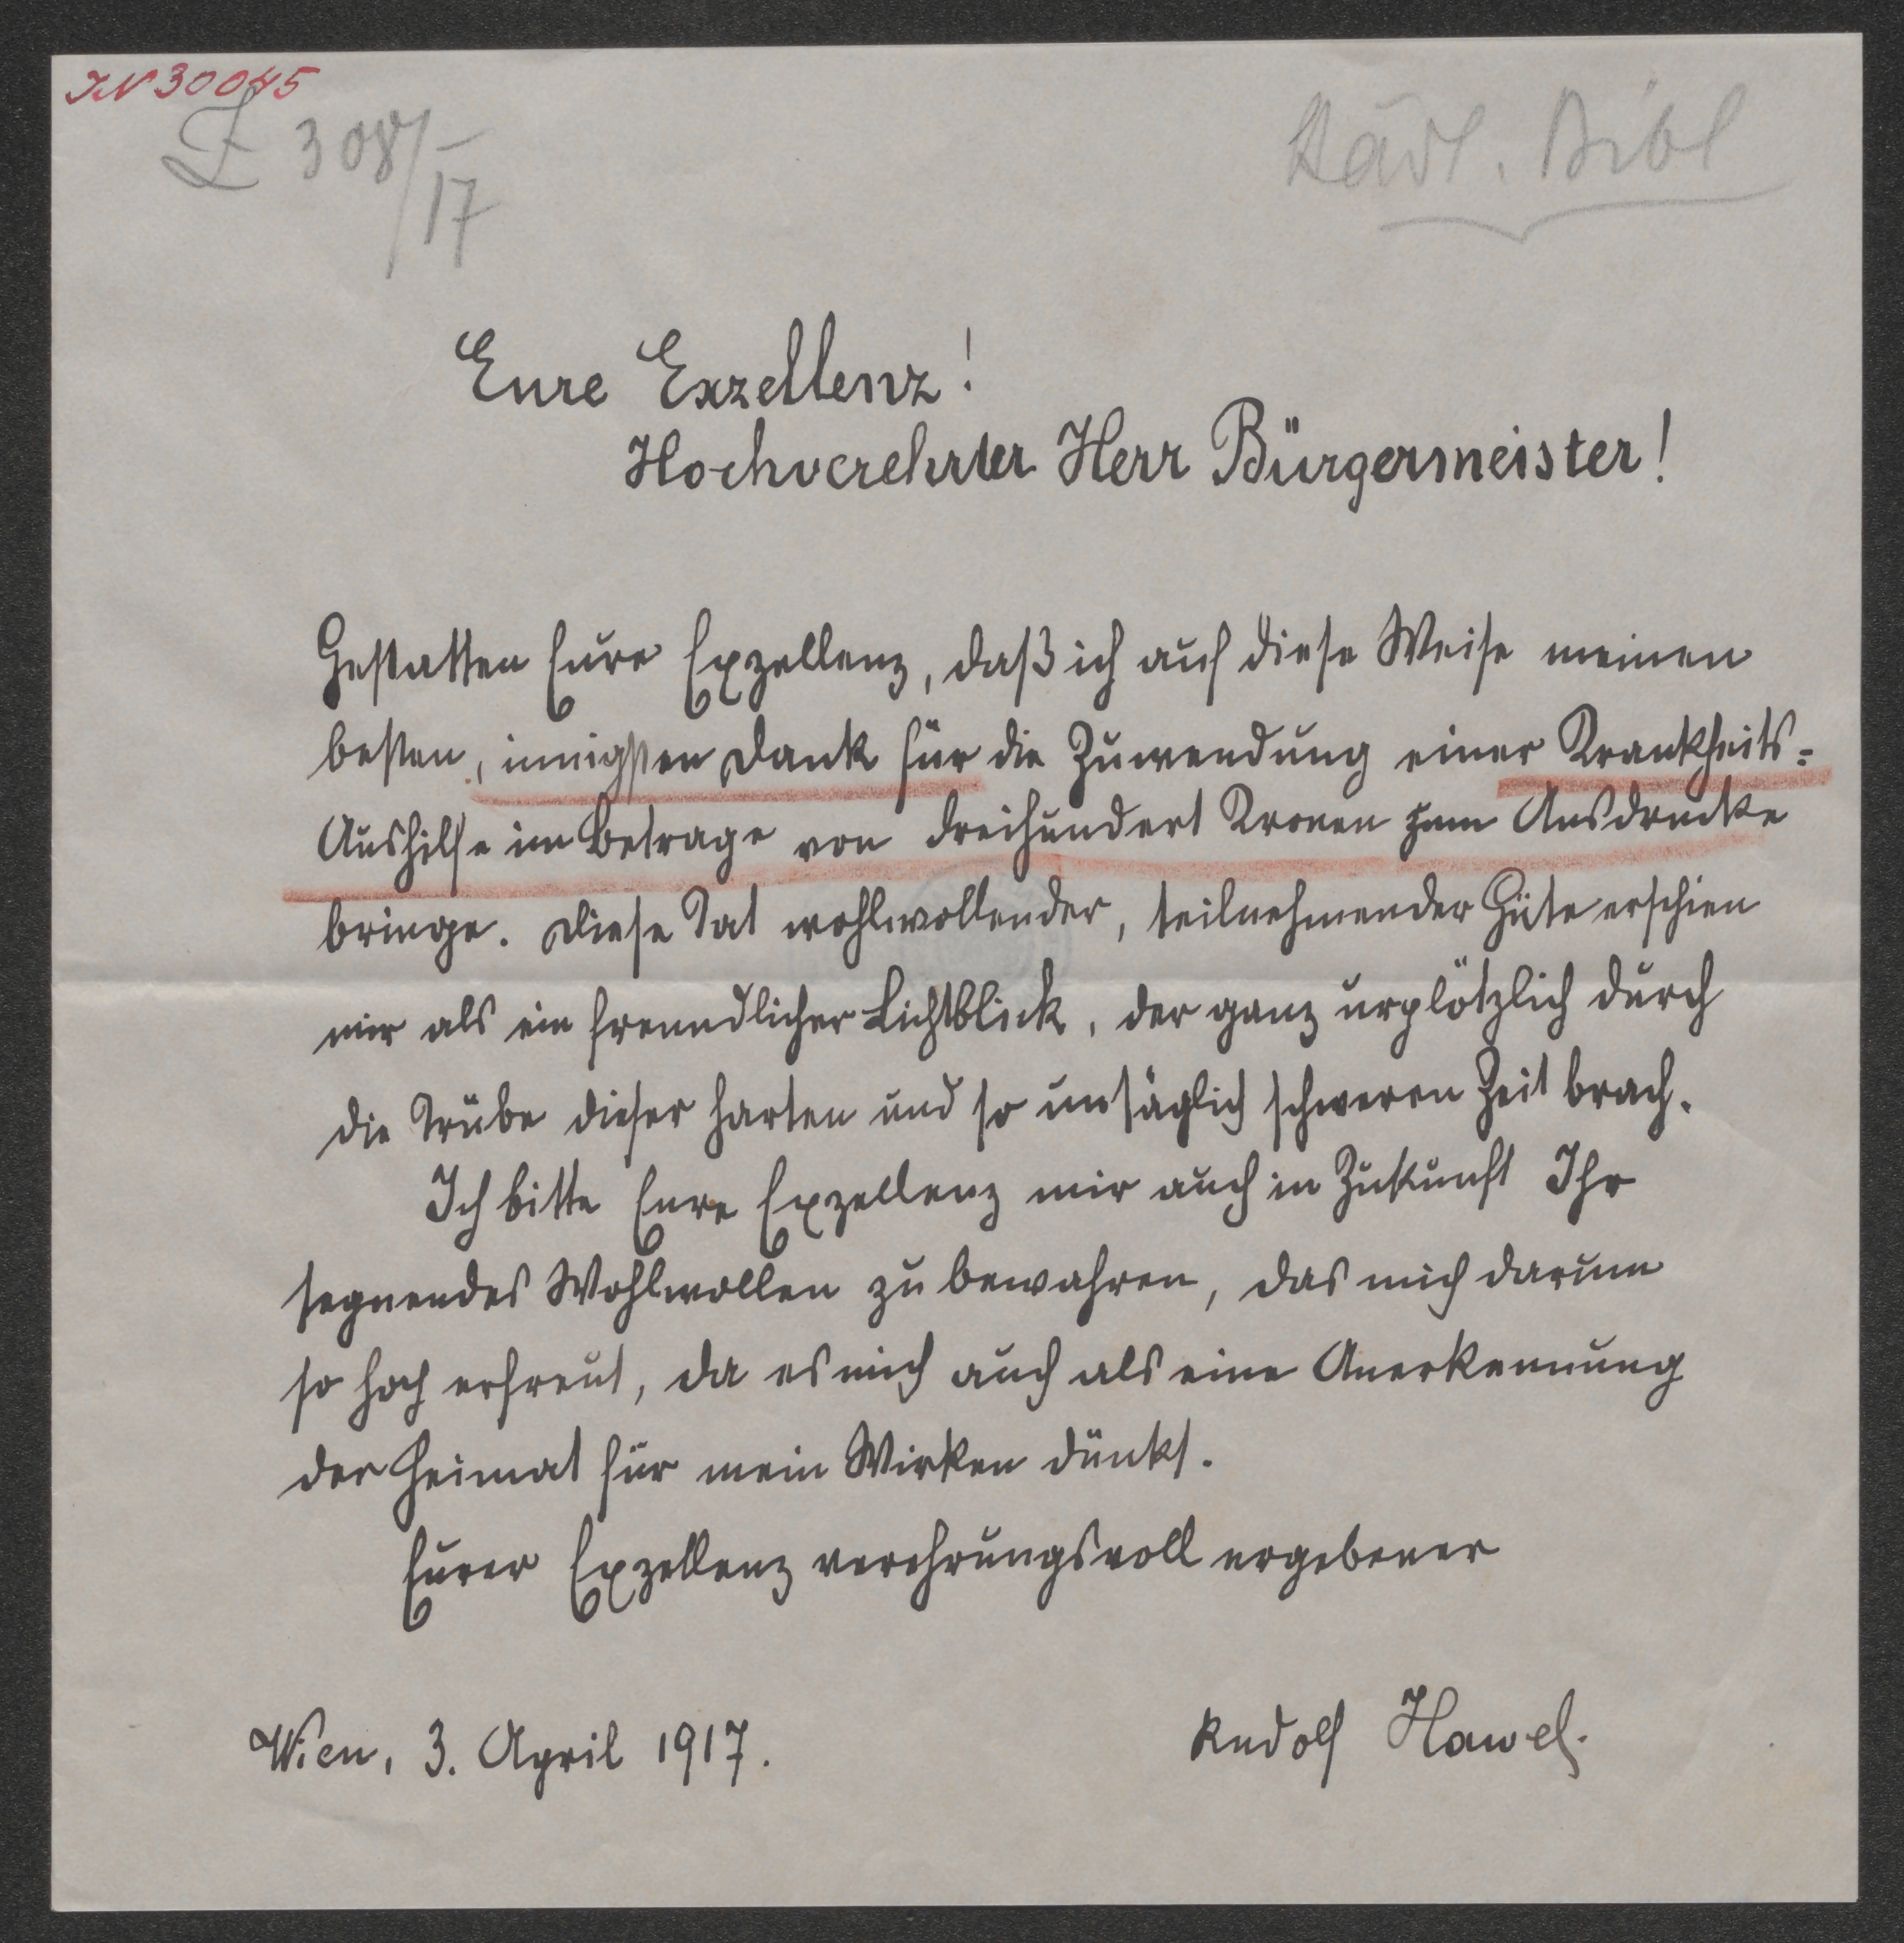 IN 30045
Z 308/17
Städt. Bibl
Eure Exzellenz!
Hochverehrter Herr Bürgermeister!
Gestatten Eure Exzellenz, daß ich auf diese Weise meinen
besten, innigsten Dank für die Zuwendung einer Krankheits-
Aushilfe im Betrage von dreihundert Kronen zum Ausdrucke
bringe. Diese Tat wohlwollender, teilnehmender Güte erschien
mir als ein freundlicher Lichtblick, der ganz urplötzlich durch
die Trübe dieser harten und so unsäglich schweren Zeit brach.
Ich bitte Eure Exzellenz mir auch in Zukunft Ihr
segnendes Wohlwollen zu bewahren, das mich darum
so hoch erfreut, da es mich auch als eine Anerkennung
der Heimat für mein Wirken dünkt.
Eurer Exzellenz verehrungsvoll ergebener
Wien, 3. April 1917.
Rudolf Hawel.